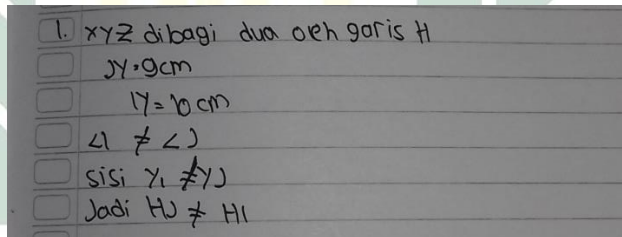 1. XYZ dibagi dua oeh garis H
JY = 9cm
IY = 10 cm
∠I ≠ ∠J
sisi YI ≠ YJ
Jadi HJ ≠ HI